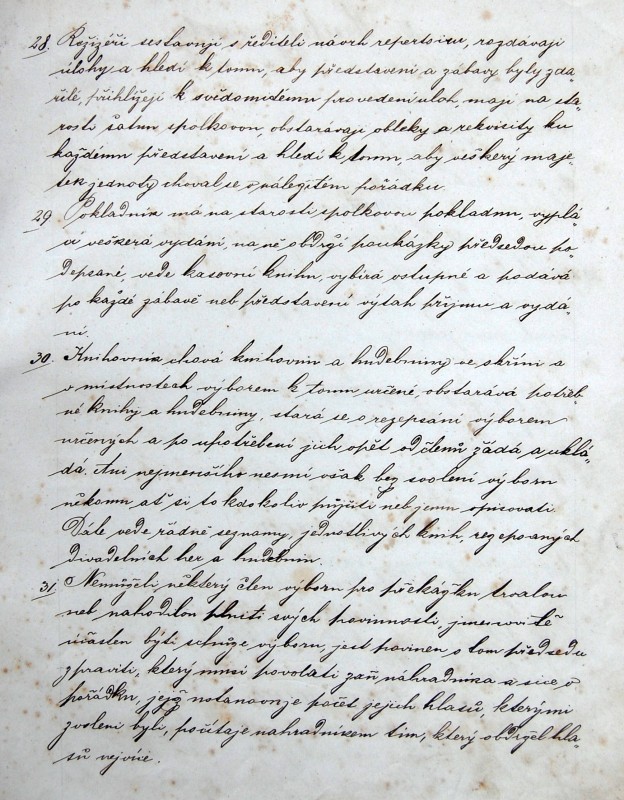 28. Režizéři sestavují s řediteli návrh repertoiru, rozdávají
úlohy a hledí k tomu, aby představení a zábavy byly zda-
řilé, přihlížejí k svědomitému provedení úloh, mají na sta-
rosti šatnu spolkovou, obstarávají obleky a rekvisity ku
každému představení a hledí k tomu, aby veškerý maje-
tek jednoty choval se v náležitém pořádku.
29 Pokladník má na starosti spolkovou pokladnu, vyplá-
cí veškerá vydání, na ně obdrží poukázky předsedou po-
depsané, vede kasovní knihu, vybírá vstupné a podává
po každé zábavě neb představení výtah příjmu a vydá-
ní.
30. Knihovník chová knihovnu a hudebniny ve skříni a
v místnostech výborem k tomu určené, obstarává potřeb-
né knihy a hudebniny, stará se o rozepsání výborem
určených a po upotřebení jich opět od členů žádá a uklá-
dá. Ani nejmenšího nesmí však bez svolení výboru
někomu ať si to kdokoliv půjčiti neb jemu opisovati.
Dále vede řádné seznamy, jednotlivých knih, rozepsaných
divadelních her a hudebnin.
31. Nemůželi některý člen výboru pro překážku trvalou
neb nahodilou plniti svých povinností, jmenovitě
účasten býti schůze výboru, jest povinen o tom předsedu
zpraviti, který musí povolati zaň náhradníka a sice v
pořádku, jejž ustanovuje počet jejich hlasů, kterými
zvoleni byli, počítaje náhradníkem tím, který obdržel hla-
sů nejvíce.